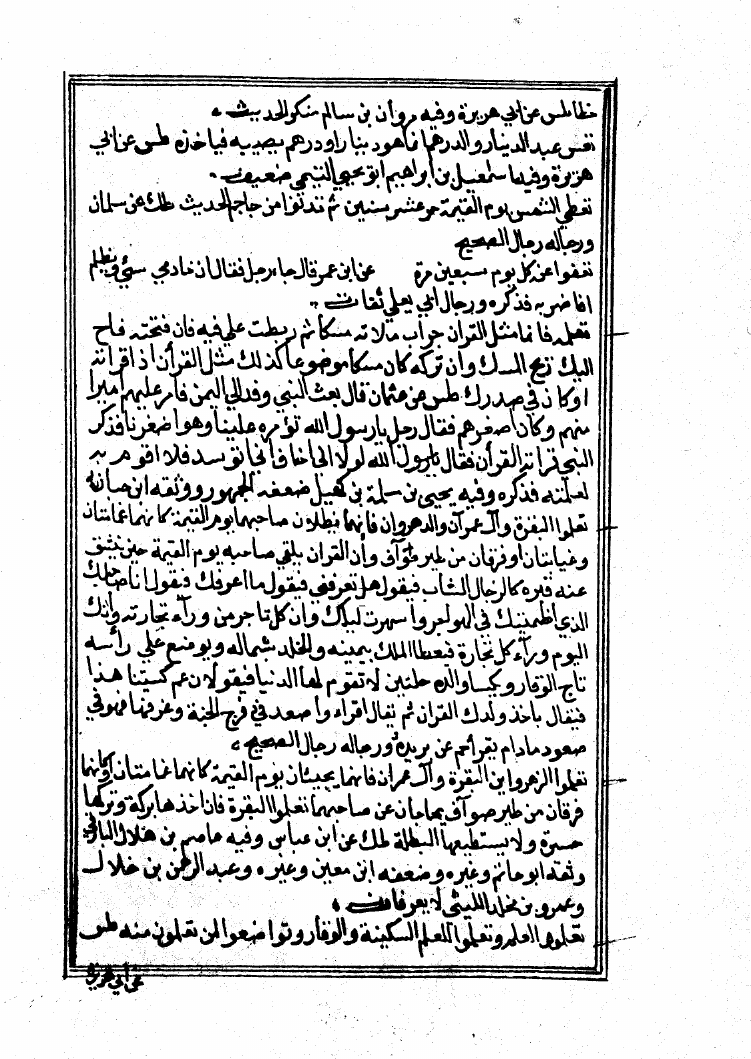 خطا طس عن ابي هريرة وفيه مروان بن سالم منكر الحديث ،
تعس عبد الدينار والدرهم فاهود بنار اودرهم يصديه فياخزه طس عن ابي
هريرة وفيه اسمعيل بن ابراهيم ابو يحيي التيمي ضعيف .
تعطي الشمس يوم القيمة حر عشر سنين ثم تدنوا من جاجم الحديث طك عن سلمان
ورجاله رجال الصحيح
تعفوا عن كل يوم سبعين مرة عن ابن عمر قال جاء رجل فقال ان خادمي سيئ ويظلم
افاضربه فذكره ورجال ابي يعلي ثقات ..
تعلمه فانما مثل القران جراب ملاته مسكا ثم ربطت علي فيه فان فتحته فاح
اليك ريح المسك وان تركه كان مسكا موضوعا كذلك مثل القرآن اذ اقراته
او كان في صدرك طس عن عثمان قال بعث النبي وفد الي اليمن فامر عليهم اميرا
منهم وكان اصغرهم فقال رجل يا رسول الله تؤمره علينا وهوا ضغرنا فذكر
النبي قراته القرآن فقال يارسول الله لولا اني اخاف اني اتوسد فلا اقوم به
لعلمته فذكره وفيه يحيي بن سلمة بن كهيل ضعفه الجمهور ووثقه ابن حبان
تعلموا البقرة وآل عمرآن والدهروان فانهما يظلان صاحبهما يوم القيمة كانهما غمامتان
وغيابتان او فرقان من طير صوآف وان القران يلقي صاحبه يوم القيمة حين ينشق
عنه قبره كالرجال الشاب فيقول هل تعرفني فيقول ما اعرفك فيقول انا صاحبك
الذي اظميتك في الهواجر واسهرت ليلك وان كل تاجر من ورآء تجارته وانك
اليوم ورآء كل تجارة فيعطا الملك بيمينه والخلد بشماله ويوضع علي رأسه
تاج الوقار ويكسا والديه حلتين لا تقوم لها الدنيا فيقولان عم كسيتنا هذا
فيقال باخذ ولدك القران ثم يقال اقراء وأصعد في درج الجنة وغرفها فهو في
صعود مادام يقرأحم عن بريدة ورجاله رجال الصحيح ،
تعلموا الزهرواين البقرة وآل عمران فانهما يجيئان يوم القيمة كانهما غمامتان اوكانهما
فرقان من طير صوآف يحاجان عن صاحبهما تعلموا البقرة فان اخذها بركة وتركها
حسرة ولا يستطيعها البطلة طك عن ابن عباس وفيه عاصم بن هلال البارقي
وثقه ابو حاتم وغيره وضعفه ابن معين وغيره وعبد الرحمن بن خلال
وعمرو بن مخلد الليثي لا يعرفان ،
تعلموا العلم وتعلموا للعلم السكينة والوقار وتواضعوا لمن تعلمون منه طس
عن أبي هريرة